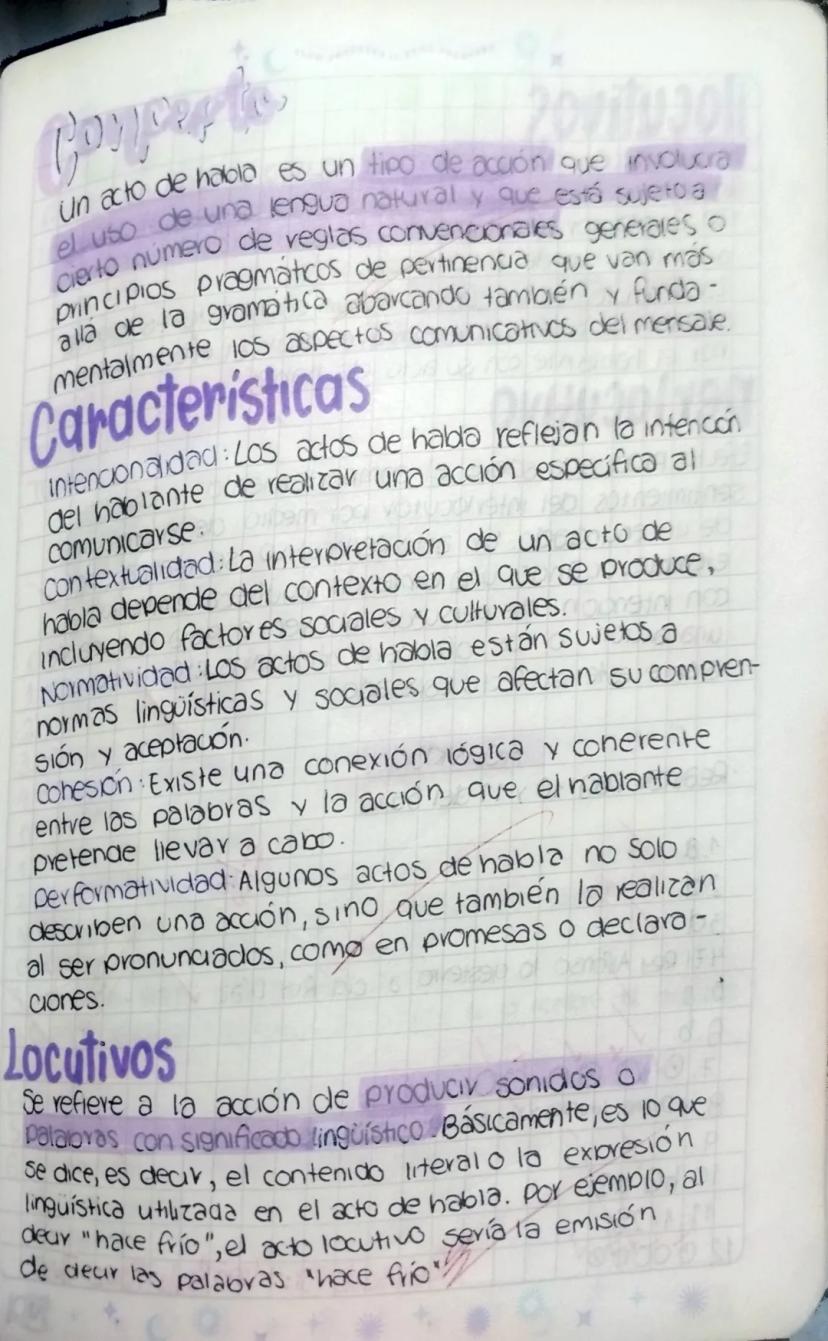 Concepto
Un acto de habla es un tipo de acción que involucra
el uso de una lengua natural y que está sujeto a
cierto número de reglas convencionales generales o
principios pragmáticos de pertinencia que van más
allá de la gramática abarcando también y funda-
mentalmente los aspectos comunicativos del mensaje.
Características
Intencionalidad: Los actos de habla reflejan la intención
del hablante de realizar una acción específica al
comunicarse.
Contextualidad: La interpretación de un acto de
habla depende del contexto en el que se produce,
incluyendo factores sociales y culturales.
Normatividad: Los actos de habla están sujetos a
normas lingüísticas y sociales que afectan su compren-
sión y aceptación.
Cohesión: Existe una conexión lógica y coherente
entre las palabras y la acción que el hablante
pretende llevar a cabo.
Performatividad: Algunos actos de habla no solo
describen una acción, sino que también la realizan
al ser pronunciados, como en promesas o declara-
ciones.
Locutivos
Se refiere a la acción de producir sonidos o
palabras con significado lingüístico. Básicamente, es lo que
se dice, es decir, el contenido literal o la expresión
lingüística utilizada en el acto de habla. Por ejemplo, al
decir "hace frío", el acto locutivo sería la emisión
de decir las palabras "hace frío"